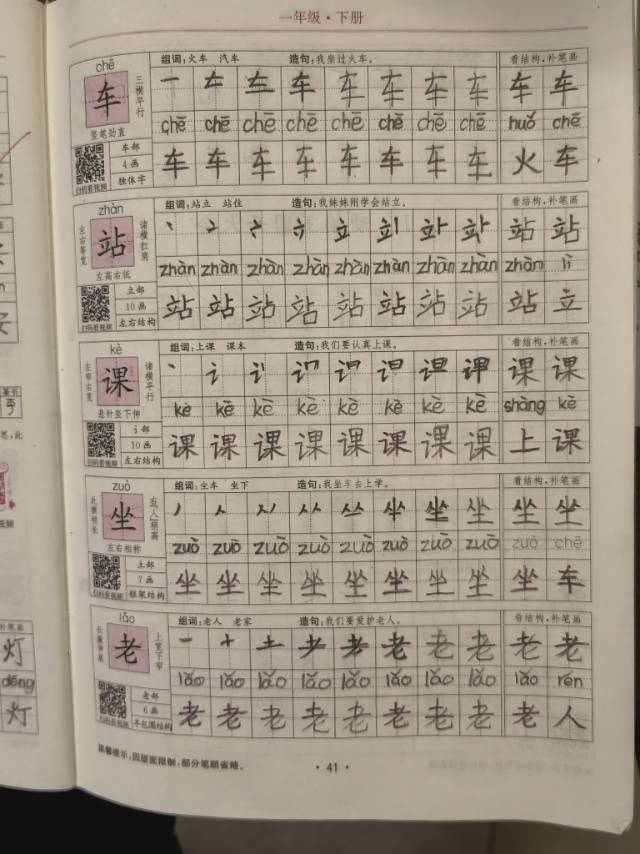 一年级·下册
chē 组词:火车 汽车 造句:我坐过火车。 看结构,补笔画
车 三横平行
竖笔劲直
chē chē chē chē chē chē chē chē huǒ chē
车部
4画
独体字
扫码看视频
车 车 车 车 车 车 车 车 火 车
zhàn 组词:站立 站住 造句:我妹妹刚学会站立。 看结构,补笔画
左右等宽 站 诸横扛肩
左高右低
站 站
zhàn zhàn zhàn zhàn zhàn zhàn zhàn zhàn zhàn lì
立部
10画
左右结构
扫码看视频
站 站 站 站 站 站 站 站 站 立
kè 组词:上课 课本 造句:我们要认真上课。 看结构,补笔画
左窄右宽 课 诸横平行
悬针竖下伸
课 课
kè kè kè kè kè kè kè kè shàng kè
讠部
10画
左右结构
扫码看视频
课 课 课 课 课 课 课 课 上 课
zuò 组词:坐车 坐下 造句:我坐车去上学。 看结构,补笔画
此横稍长 坐 左"人"稍高
左右相称
坐 坐 坐
zuò zuò zuò zuò zuò zuò zuò zuò zuò chē
土部
7画
框架结构
扫码看视频
坐 坐 坐 坐 坐 坐 坐 坐 坐 车
lǎo 组词:老人 老家 造句:我们要爱护老人。 看结构,补笔画
老 上宽下窄
老 老 老 老 老
lǎo lǎo lǎo lǎo lǎo lǎo lǎo lǎo lǎo rén
老部
6画
半包围结构
扫码看视频
老 老 老 老 老 老 老 老 老 人
温馨提示:因版面限制,部分笔顺省略。
·41·
灯
dēng
灯